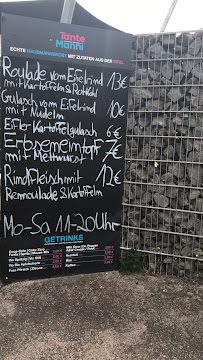 Tante
Manni
ECHTE HAUSMANNSKOST MIT ZUTATEN AUS DER EIFEL
Roulade vom Eifelrind 13€
mit Kartoffeln & Rotkohl
Gulasch vom Eifelrind 10€
mit Nudeln
Eifler Kartoffelgulasch 6€
Erbseneintopf 7€
mit Mettwurst
Rindfleisch mit 12€
Remoulade & Kartoffeln
Mo-Sa 11-20 Uhr
GETRÄNKE